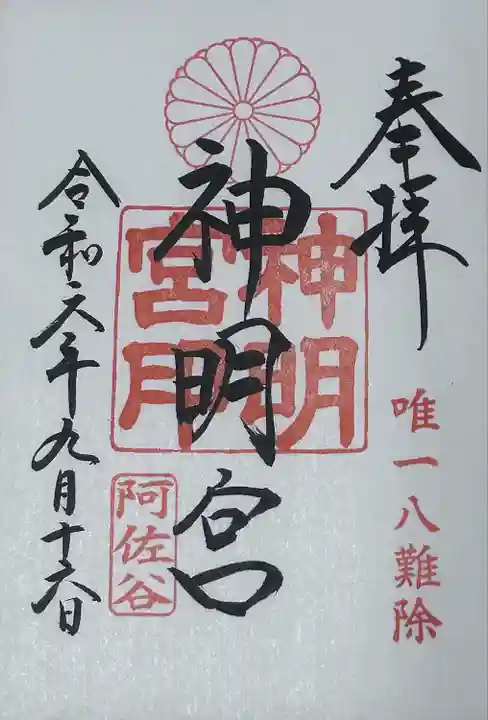 奉拝
唯一八難除
神明宮
神明
宮印
令和六年九月十六日
阿佐谷